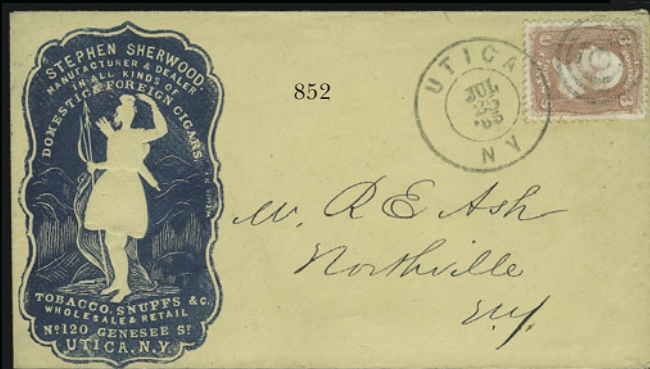 STEPHEN SHERWOOD.
MANUFACTURER & DEALER
IN ALL KINDS OF
DOMESTIC & FOREIGN CIGARS.
TOBACCO, SNUFFS & C.
WHOLESALE & RETAIL
No. 120 GENESEE ST
UTICA, N.Y.
852
UTICA
JUL
N Y
3 3
U S
Mr. R E Ash
Northville
N.Y.